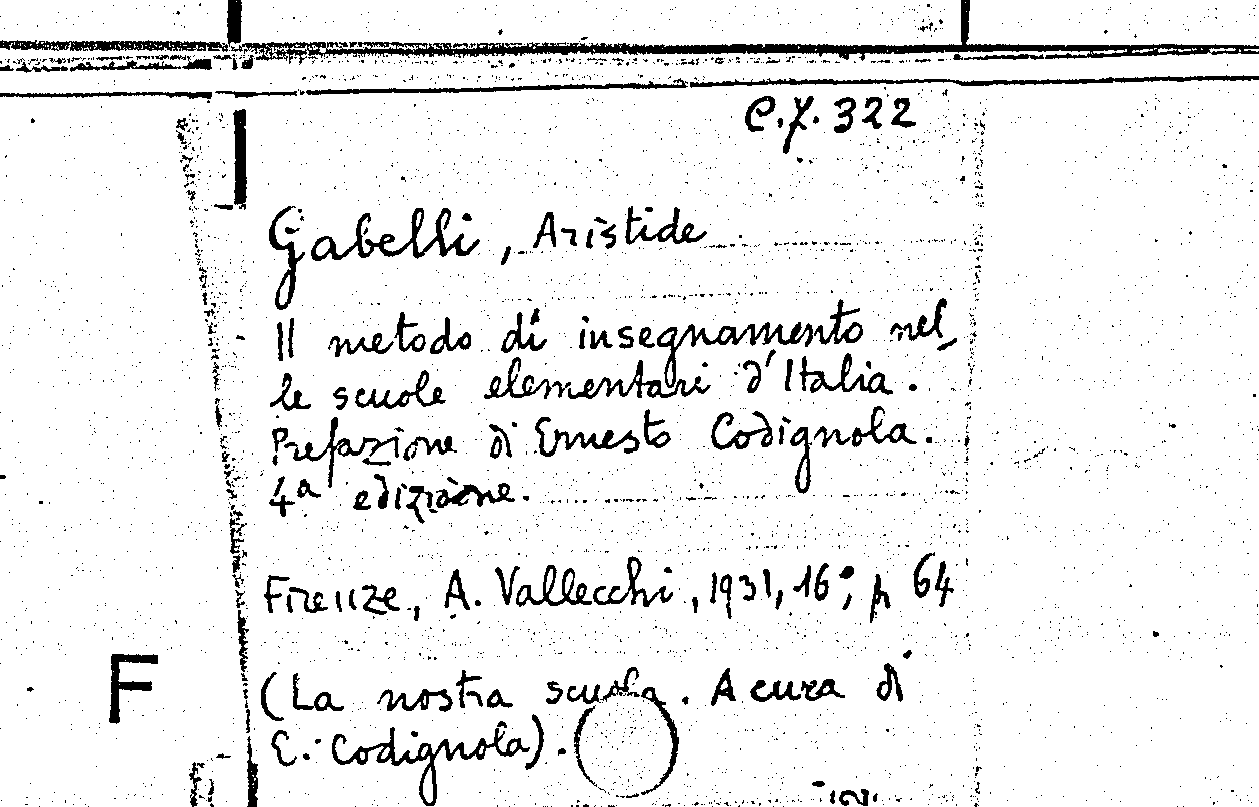 C.7.322
Gabelli, Aristide
Il metodo di insegnamento nel-
le scuole elementari d'Italia.
Prefazione di Ernesto Codignola.
4ª edizione.
Firenze, A. Vallecchi, 1931, 16°, p 64
F
(La nostra scuola. A cura di
E. Codignola).